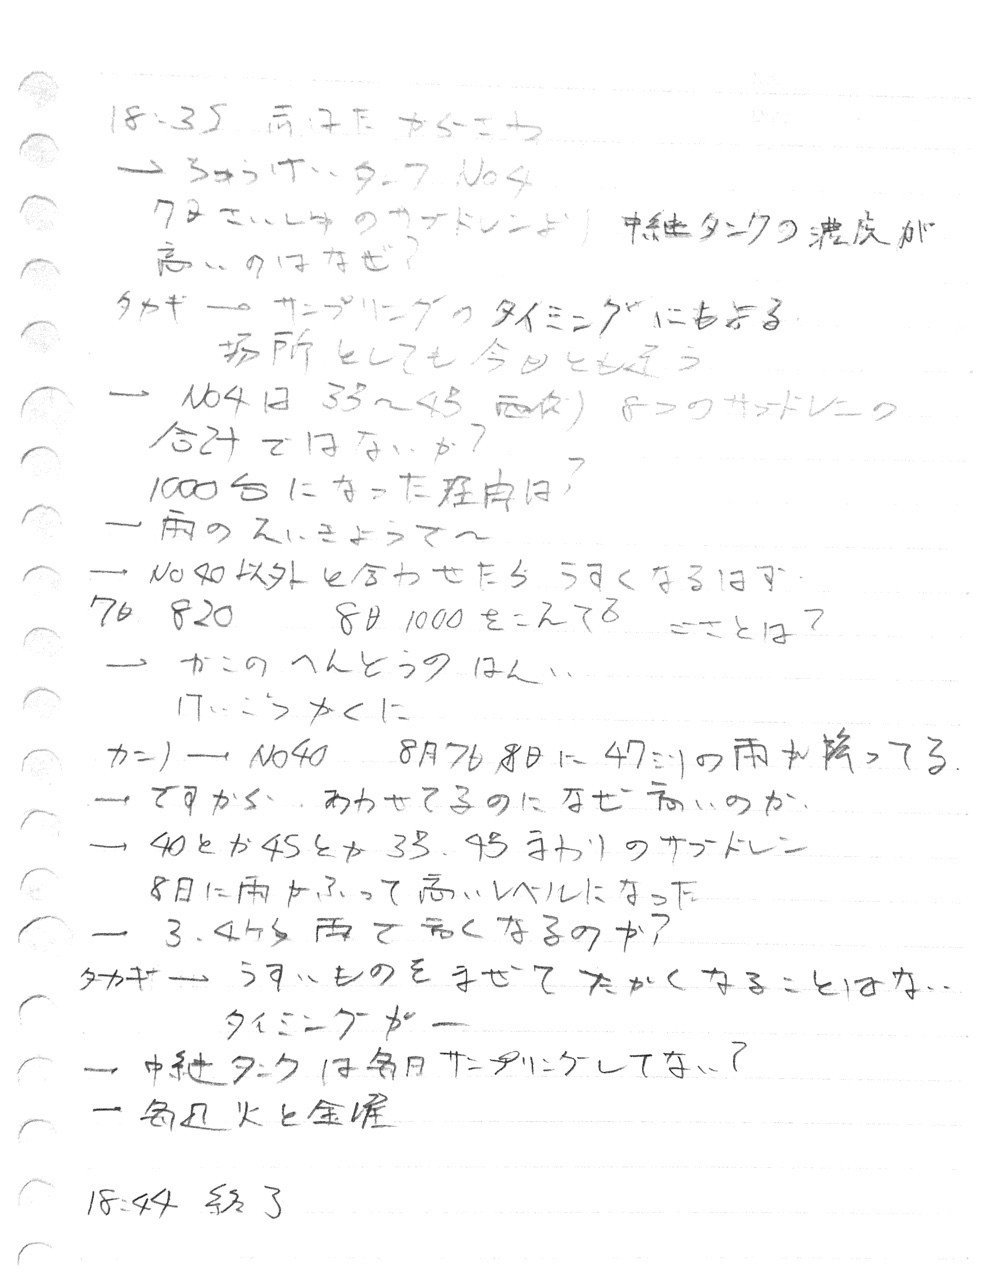 18:35
→ ちゅうけいタンク No4
7日さいしゅのサブドレンより 中継タンクの濃度が
高いのはなぜ?
タカギ → サンプリングのタイミングにもよる
場所としても今日とも違う
→ No4は 3号〜4号 8つのサブドレンの
合計ではないか?
1000台になった理由は?
→ 雨のえいきょうで〜
→ No40以外と合わせたらうすくなるはず.
7日 820 8日 1000をこえてる ことは?
→ かこのへんどうのはんい
けいこうかくに
→ No40 8月7日 8日に 47ミリの雨が降ってる.
→ ですから.. あわせてるのになぜ高いのか.
→ 40とか45とか 3号.4号まわりのサブドレン
8日に雨がふって高いレベルになった
→ 3.4から 雨で高くなるのか?
タカギ → うすいものをまぜてたかくなることはない..
タイミングがー
→ 中継タンクは毎日サンプリングしてない?
→ 毎週火と金曜
18:44 終了